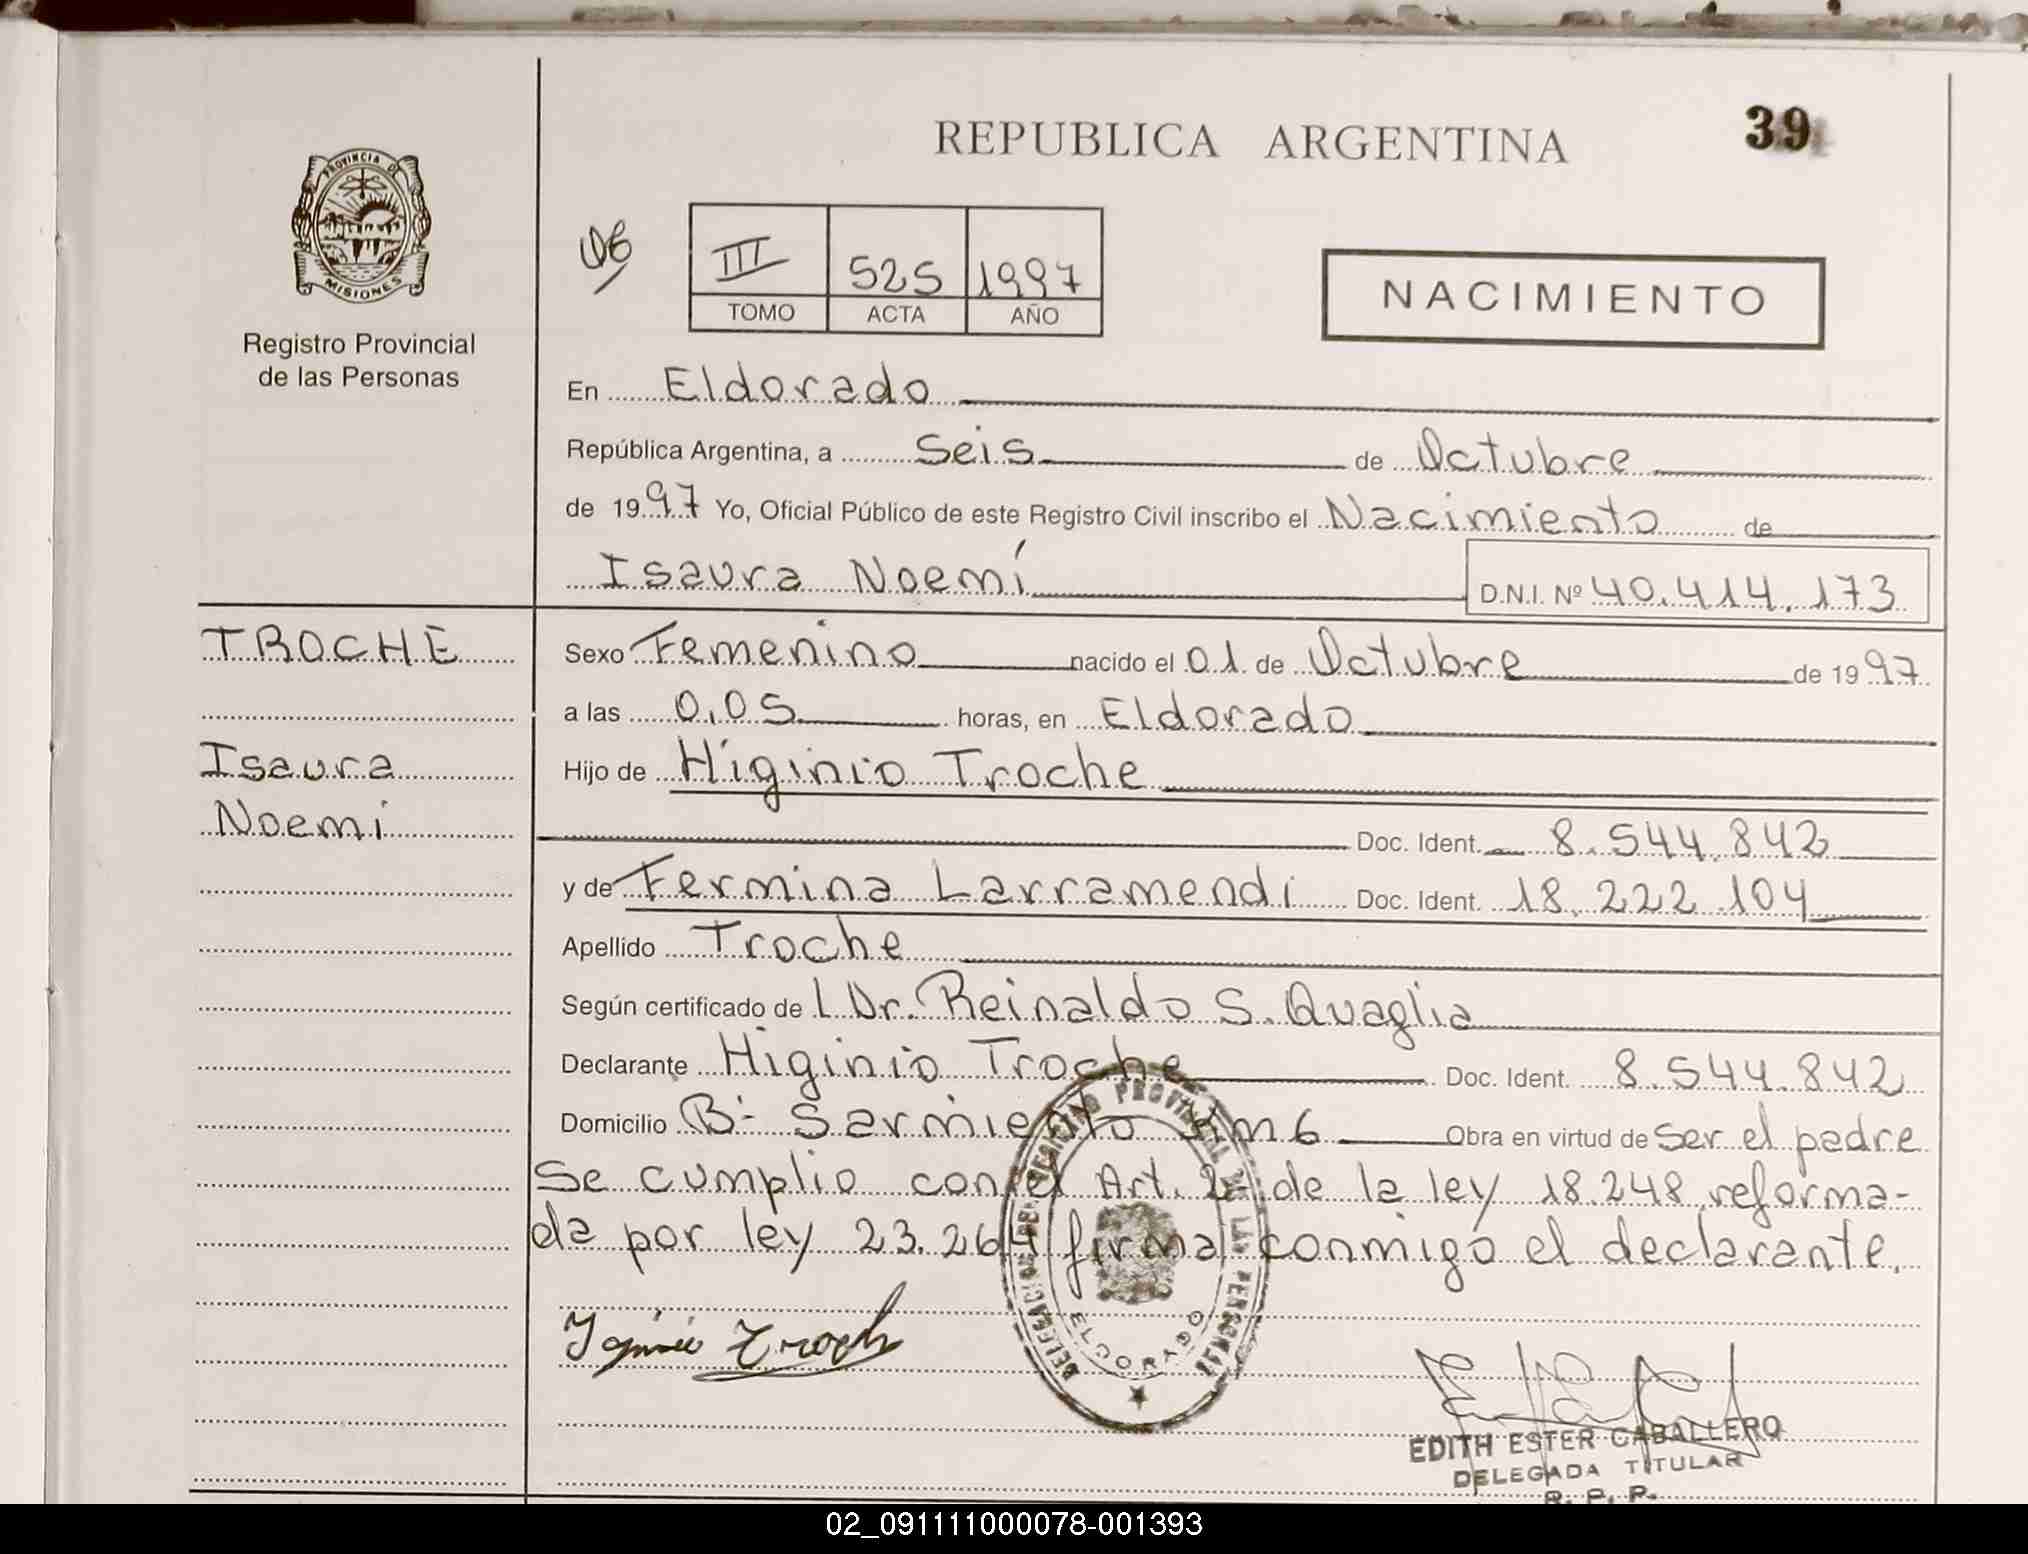 REPUBLICA ARGENTINA
39
PROVINCIA DE
MISIONES
Registro Provincial
de las Personas
III 525 1997
TOMO ACTA AÑO
NACIMIENTO
En Eldorado
República Argentina, a Seis de Octubre
de 1997 Yo, Oficial Público de este Registro Civil inscribo el Nacimiento de
Isaura Noemí D.N.I. Nº 40.414.173
TROCHE
Isaura
Noemi
Sexo Femenino nacido el 01 de Octubre de 1997
a las 0,05 horas, en Eldorado
Hijo de Higinio Troche
Doc. Ident. 8.544.842
y de Fermina Larramendi Doc. Ident. 18.222.104
Apellido Troche
Según certificado de l Dr. Reinaldo S. Quaglia
Declarante Higinio Troche Doc. Ident. 8.544.842
Domicilio B- Sarmiento Km 6 Obra en virtud de Ser el padre
Se cumplio con el Art. 2- de la ley 18.248 reforma-
da por ley 23.264 firma conmigo el declarante.
DELEGACION DEL REGISTRO PROVINCIAL DE LAS PERSONAS
ELDORADO
EDITH ESTER CABALLERO
DELEGADA TITULAR
R. P. P.
02_091111000078-001393